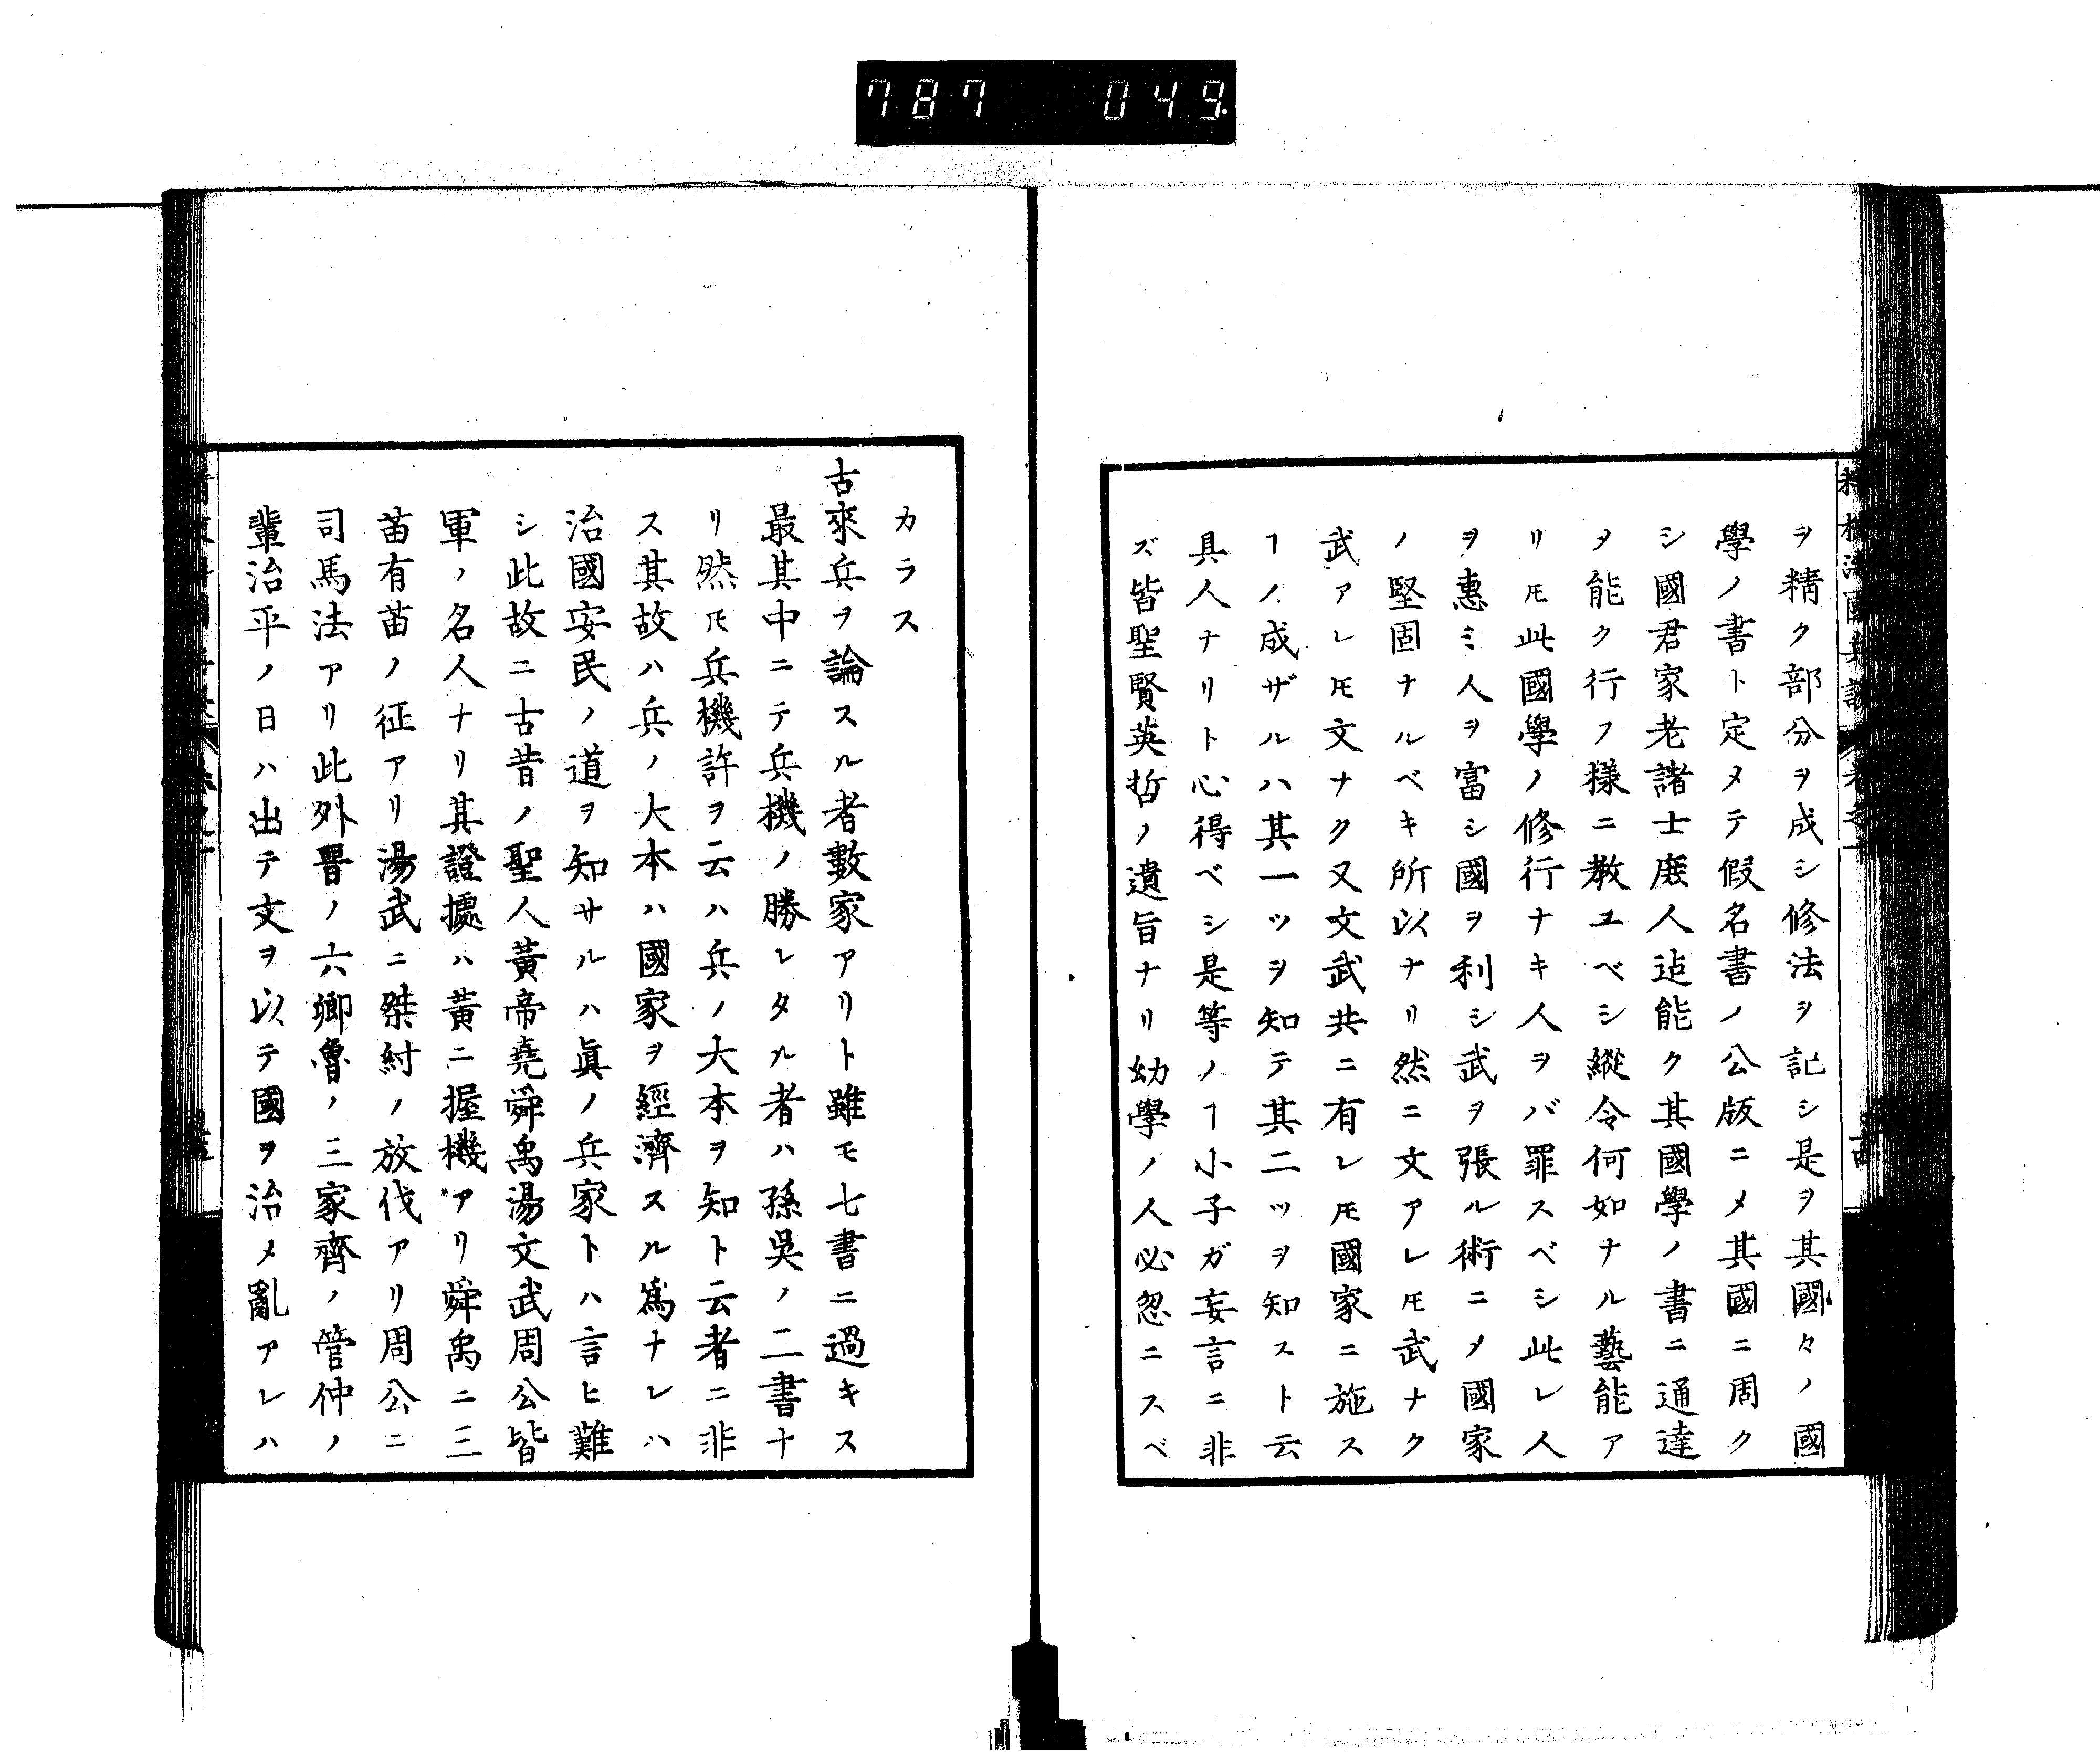 787 049
ヲ精ク部分ヲ成シ修法ヲ記シ是ヲ其國々ノ國
學ノ書ト定メテ假名書ノ公版ニメ其國ニ周ク
シ國君家老諸士庻人迠能ク其國學ノ書ニ通達
タ能ク行フ様ニ教ユベシ縱令何如ナル藝能ア
リ𪜈此國學ノ修行ナキ人ヲバ罪スベシ此レ人
ヲ惠ミ人ヲ富シ國ヲ利シ武ヲ張ル術ニメ國家
ノ堅固ナルベキ所以ナリ然ニ文アレ𪜈武ナク
武アレ𪜈文ナク又文武共ニ有レ𪜈國家ニ施ス
ヿノ成ザルハ其一ッヲ知テ其二ッヲ知スト云
具人ナリト心得ベシ是等ノヿ小子ガ妄言ニ非
ズ皆聖賢英哲ノ遺旨ナリ幼學ノ人必忽ニスベ
カラス
古來兵ヲ論スル者數家アリト雖モ七書ニ過キス
最其中ニテ兵機ノ勝レタル者ハ孫吳ノ二書ナ
リ然𪜈兵機許ヲ云ハ兵ノ大本ヲ知ト云者ニ非
ス其故ハ兵ノ大本ハ國家ヲ經濟スル爲ナレハ
治國安民ノ道ヲ知サルハ眞ノ兵家トハ言ヒ難
シ此故ニ古昔ノ聖人黃帝堯舜禹湯文武周公皆
軍ノ名人ナリ其證據ハ黃ニ握機アリ舜禹ニ三
苗有苗ノ征アリ湯武ニ桀紂ノ放伐アリ周公ニ
司馬法アリ此外晋ノ六卿魯ノ三家齊ノ管仲ノ
輩治平ノ日ハ出テ文ヲ以テ國ヲ治メ亂アレハ